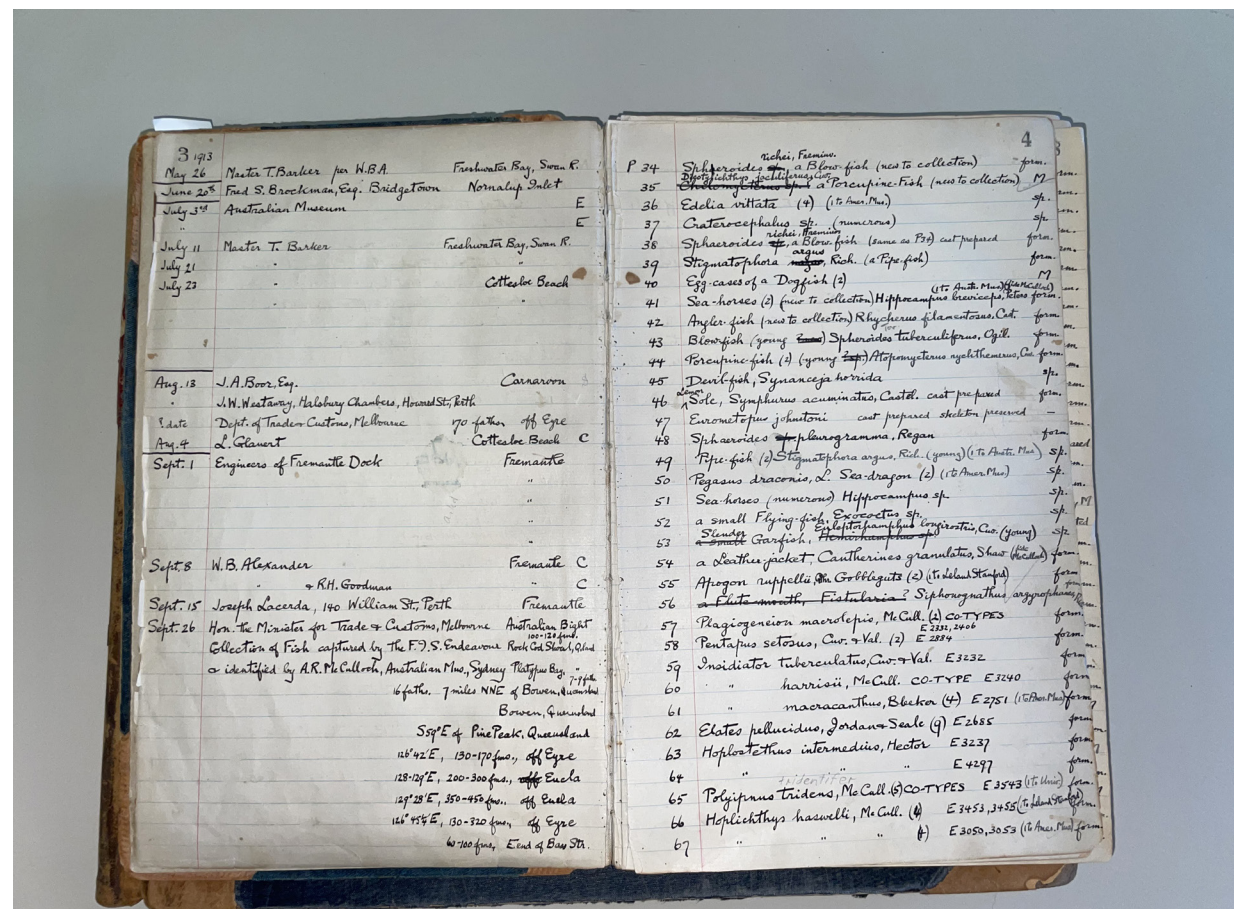 3 1913
May 26 Master T. Barker per W.B.A. Freshwater Bay, Swan R.
June 20th Fred S. Brockman, Esq. Bridgetown Nornalup Inlet
July 3rd Australian Museum E
" E
July 11 Master T. Barker Freshwater Bay, Swan R.
July 21 " "
July 23 " Cottesloe Beach
" "
Aug. 13 J.A. Boor, Esq. Carnarvon
" J.W. Westaway, Halsbury Chambers, Howard St, Perth
? date Dept. of Trade & Customs, Melbourne 170 fathm off Eyre
Aug. 4 L. Glauert Cottesloe Beach C
Sept. 1 Engineers of Fremantle Dock Fremantle
"
"
"
Sept. 8 W.B. Alexander Fremantle C
" & R.H. Goodman " C
Sept. 15 Joseph Lacerda, 140 William St., Perth Fremantle
Sept. 26 Hon. the Minister for Trade & Customs, Melbourne Australian Bight
100-120 fms.
Collection of Fish captured by the F.I.S. Endeavour Rock Cod Shoal, Q.land
& identified by A.R. McCulloch, Australian Mus., Sydney Platypus Bay, "
7-9 faths
16 faths. 7 miles NNE of Bowen, Queensland
Bowen, Queensland
S59°E of Pine Peak, Queensland
126°42'E, 130-170 fms., off Eyre
128-129°E, 200-300 fms., off Eucla
129°28'E, 350-450 fms., off Eucla
126°45½'E, 130-320 fms., off Eyre
60-100 fms, E end of Bass Str.
4
richei, Freminv.
P 34 Sphaeroides sp. a Blow-fish (new to collection) form.
Dicotylichthys jaculiferus, Cuv.
35 Chilomycterus sp. a Porcupine-Fish (new to collection) M
36 Edelia vittata (4) (1 to Amer. Mus.) sp.
37 Craterocephalus sp. (numerous) sp.
richei, Freminv
38 Sphaeroides sp, a Blow-fish (same as P34) cast prepared form.
argus
39 Stigmatophora nigra, Rich. (a Pipe-fish) form.
40 Egg-cases of a Dogfish (2) M
(1 to Austr. Mus) (fide McCulloch)
41 Sea-horses (2) (new to collection) Hippocampus breviceps, Peters form.
42 Angler-fish (new to collection) Rhycherus filamentosus, Cast. form.
43 Blowfish (young) Spheroides tuberculiferus, Ogil. form.
44 Porcupine-fish (2) (young ? sp.) Atopomycterus nycthemerus, Cuv. form.
45 Devil-fish, Synanceja horrida sp.
Lemon
46 Sole, Symphurus acuminatus, Castel. cast prepared form.
47 Eurometopus johnstoni cast prepared skeleton preserved –
48 Sphaeroides sp. pleurogramma, Regan form.
49 Pipe-fish (2) Stigmatophora argus, Rich. (young) (1 to Austr. Mus) sp.
50 Pegasus draconis, L. Sea-dragon (2) (1 to Amer. Mus.) sp.
51 Sea-horses (numerous) Hippocampus sp. sp.
52 a small Flying-fish, Exocoetus sp. sp.
Slender Euleptorhamphus longirostris, Cuv. (young)
53 a small Garfish, Hemirhamphus sp. sp
54 a Leather-jacket, Cantherines granulatus, Shaw (fide McCulloch) form
55 Apogon ruppellii, Gobbleguts (2) (1 to Leland Stanford) form.
56 a Flute-mouth, Fistularia? Siphonognathus argyrophanes form.
57 Plagiogeneion macrolepis, McCull. (2) CO-TYPES form.
E 2332, 2406
58 Pentapus setosus, Cuv. & Val. (2) E 2884 form.
59 Insidiator tuberculatus, Cuv. & Val. E3232 form
60 " harrisii, McCull. CO-TYPE E3240 form
61 " macracanthus, Bleeker (4) E2751 (1 to Amer. Mus) form
62 Elates pellucidus, Jordan & Seale (9) E2685 form
63 Hoplostethus intermedius, Hector E3237 form.
64 " " E4297 form.
tridentifer
65 Polyipnus tridens, McCull. (5) CO-TYPES E3543 (1 to Univ.) form.
66 Hoplichthys haswelli, McCull. (4) E3453, 3455 (to Leland Stanford) form.
67 " " (4) E3050, 3053 (1 to Amer. Mus) form